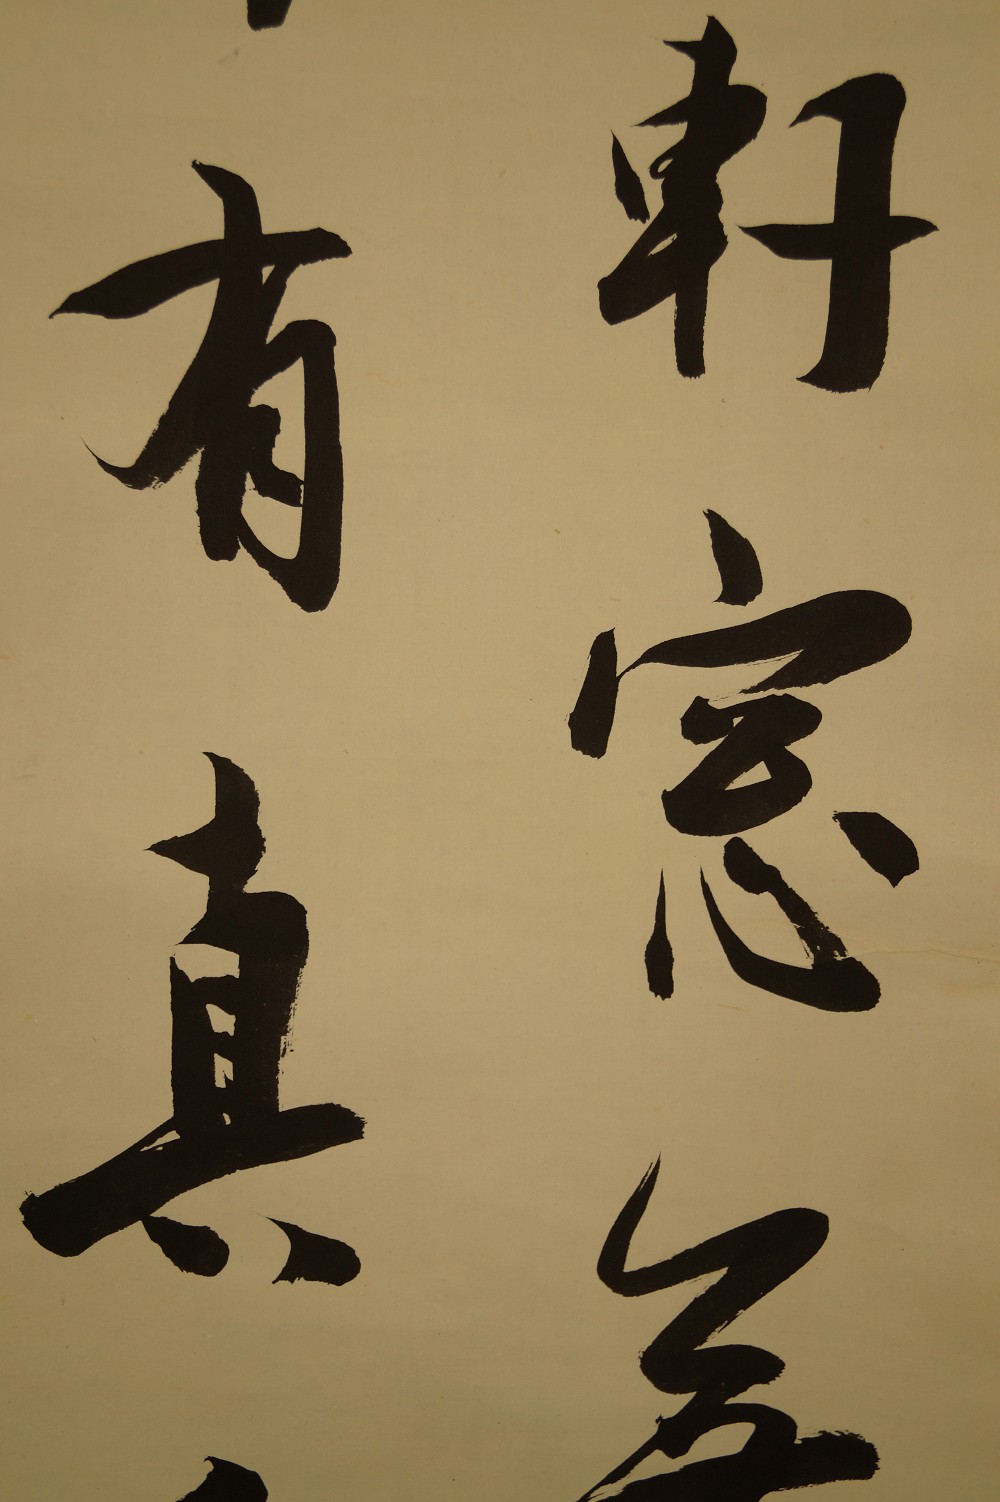 軒窓無
有真